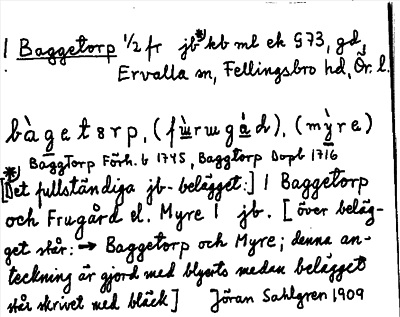 1 Baggetorp 1/2 fr jb*) kb ml ek G 73, gd,
Ervalla sn, Fellingsbro hd, Ör. l.
bàgetorp, (fùrugåd), (mỳre)
Baggtorp Förh. b 1745, Baggtorp Dopb 1716
*)
[Det fullständiga jb-belägget:] 1 Baggetorp
och Frugård el. Myre 1 jb. [över beläg-
get står: → Baggetorp och Myre; denna an-
teckning är gjord med blyerts medan belägget
står skrivet med bläck] Jöran Sahlgren 1909